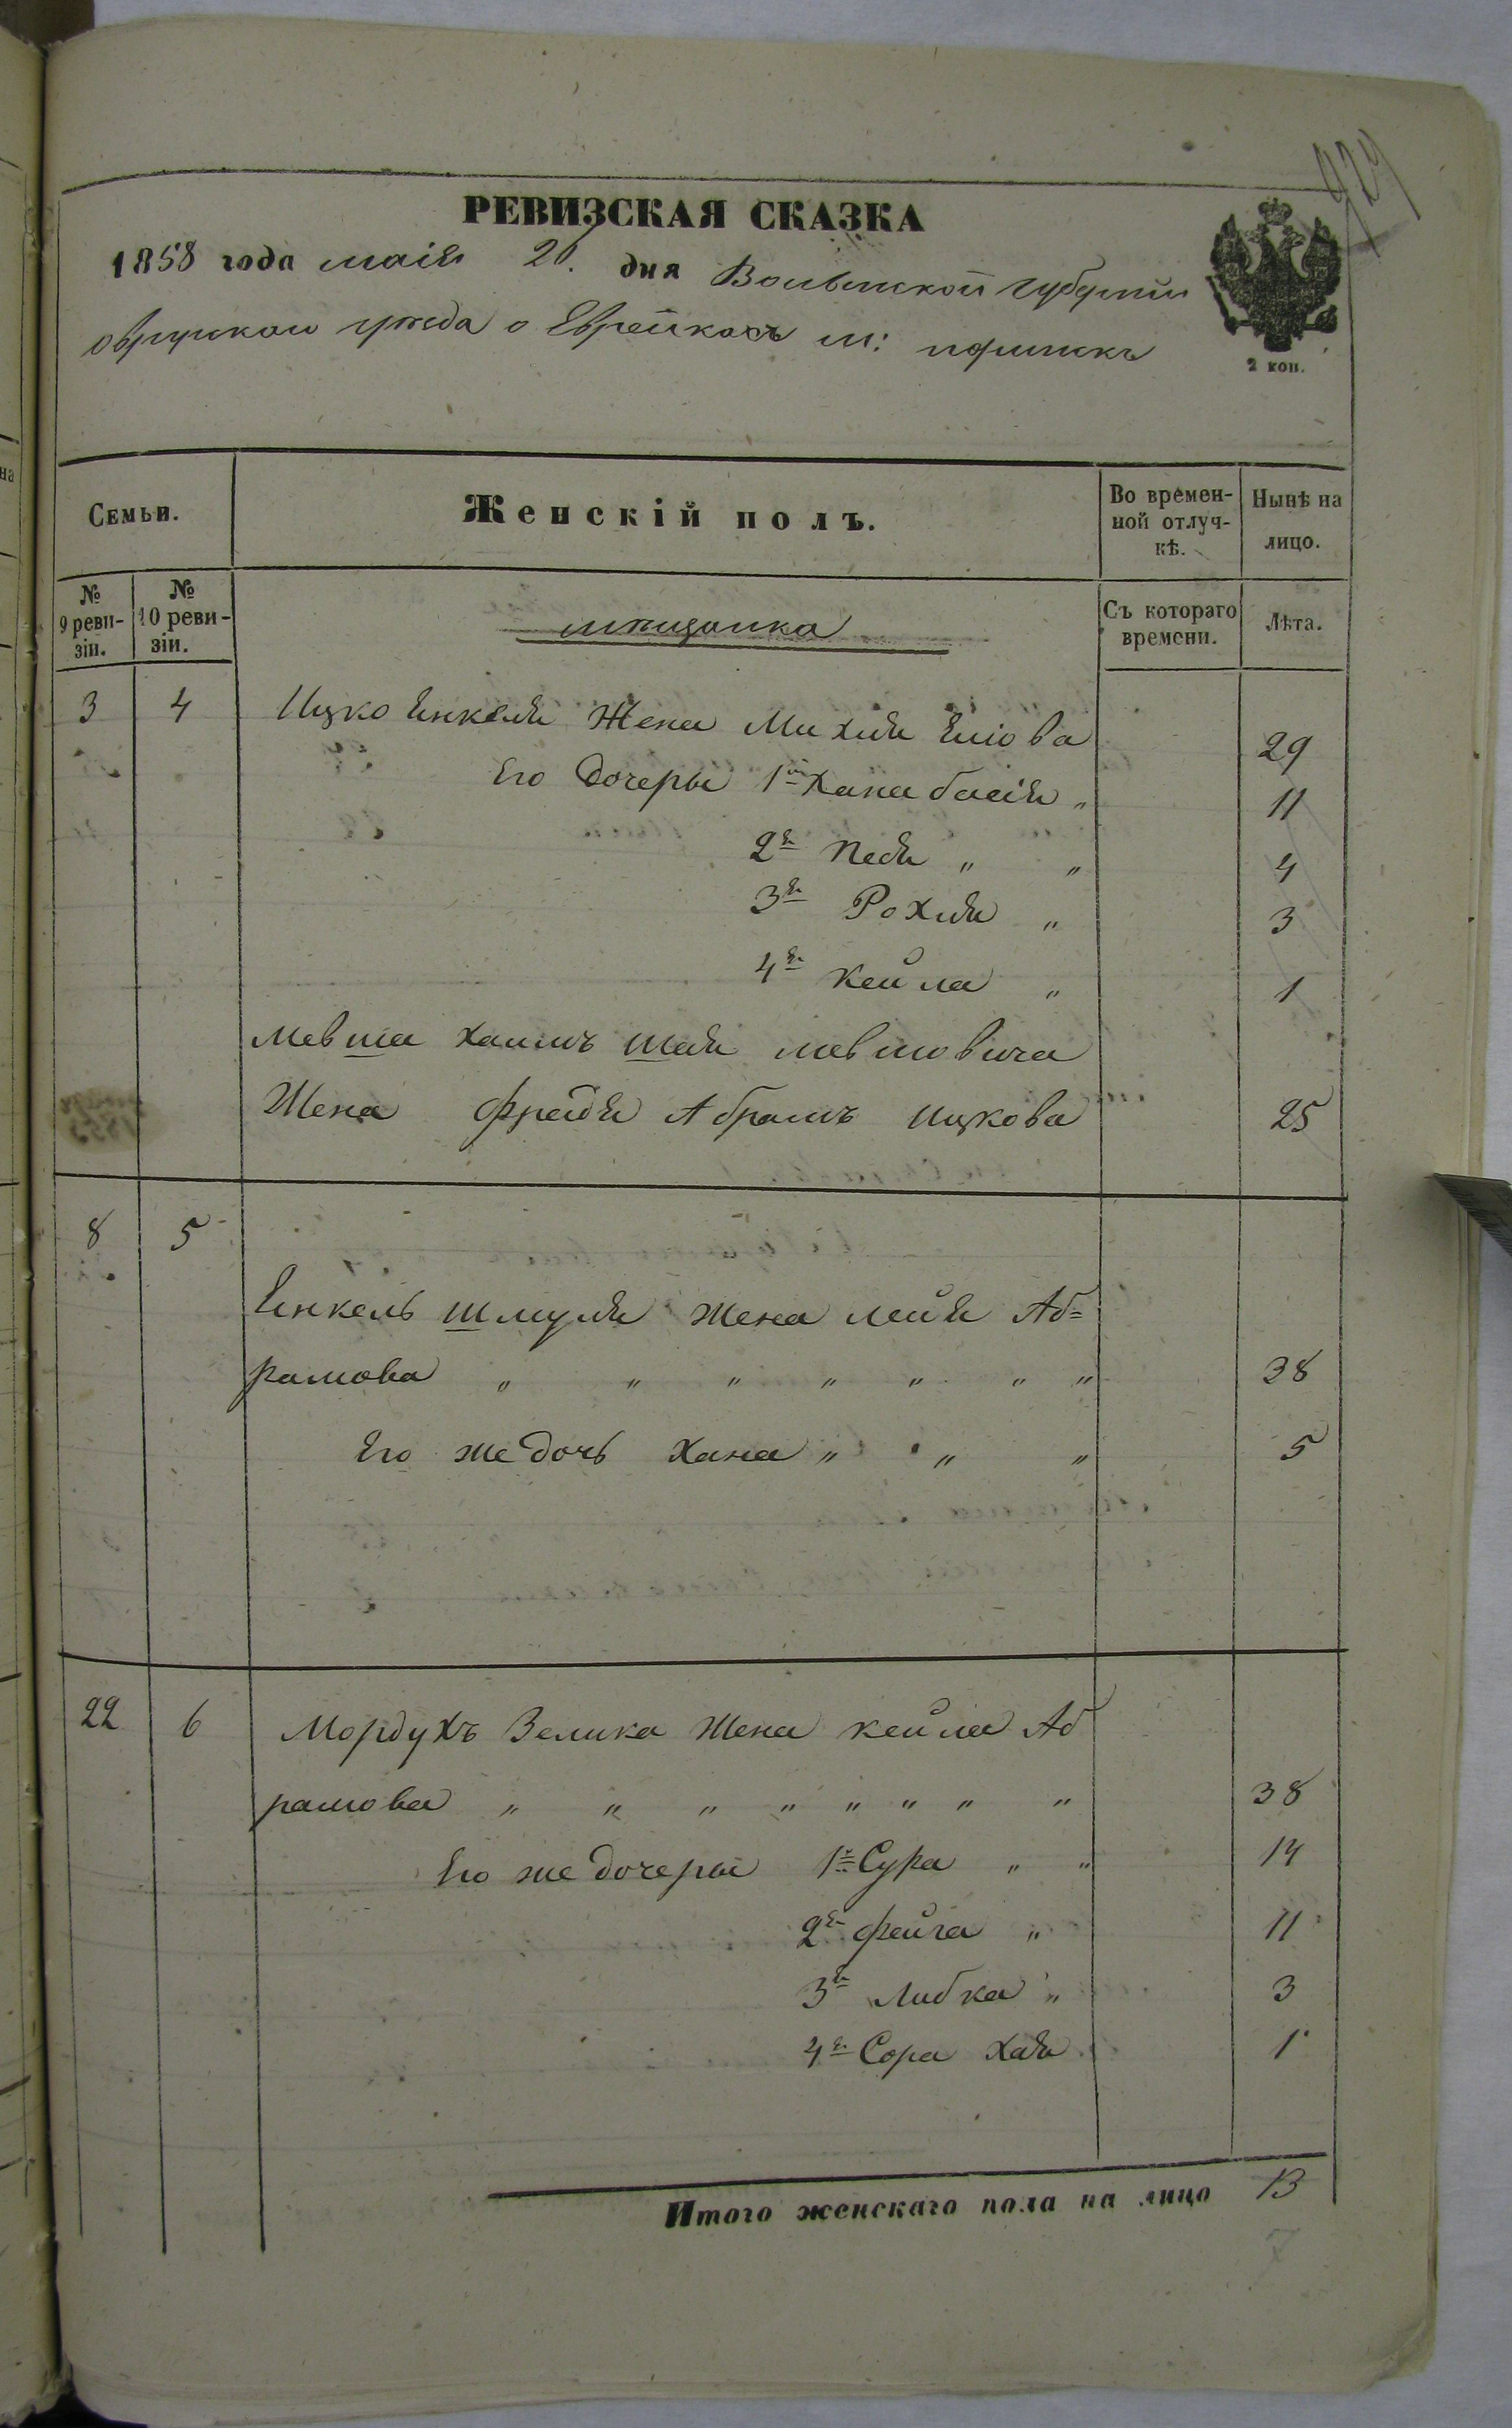 РЕВИЗСКАЯ СКАЗКА
1858 года маія 20. дня Волынской губерніи
овручскаго уезда о Еврейкахъ м:
2 коп.
Семьи.
Женскій полъ.
Во времен-
ной отлуч-
кѣ.
Нынѣ на
лицо.
№
9 реви-
зіи.
№
10 реви-
зіи.
мещанка
Съ котораго
времени.
Лѣта.
3 4 Ицко Енкеля Жена Михля Еліова 29
Его Дочеры 1я Хана басія " 11
2я Педя " " 4
3я Рохля " 3
4я Кейла " 1
Мевша Хаимъ Шая мевшовича
Жена Фрейдя Абрамъ Ицкова 25
8 5
Енкель шмуля Жена лейя Аб=
рамова " " " " " " " 38
Его же дочь Хана " " " 5
22 6 Мордухъ Зелика Жена кейла Аб
рамова " " " " " " " " 38
Его же дочеры 1я Сура " " 14
2я Фейга " 11
3я Либка " 3
4я Сора Хая 1
Итого женскаго пола на лицо 13
7